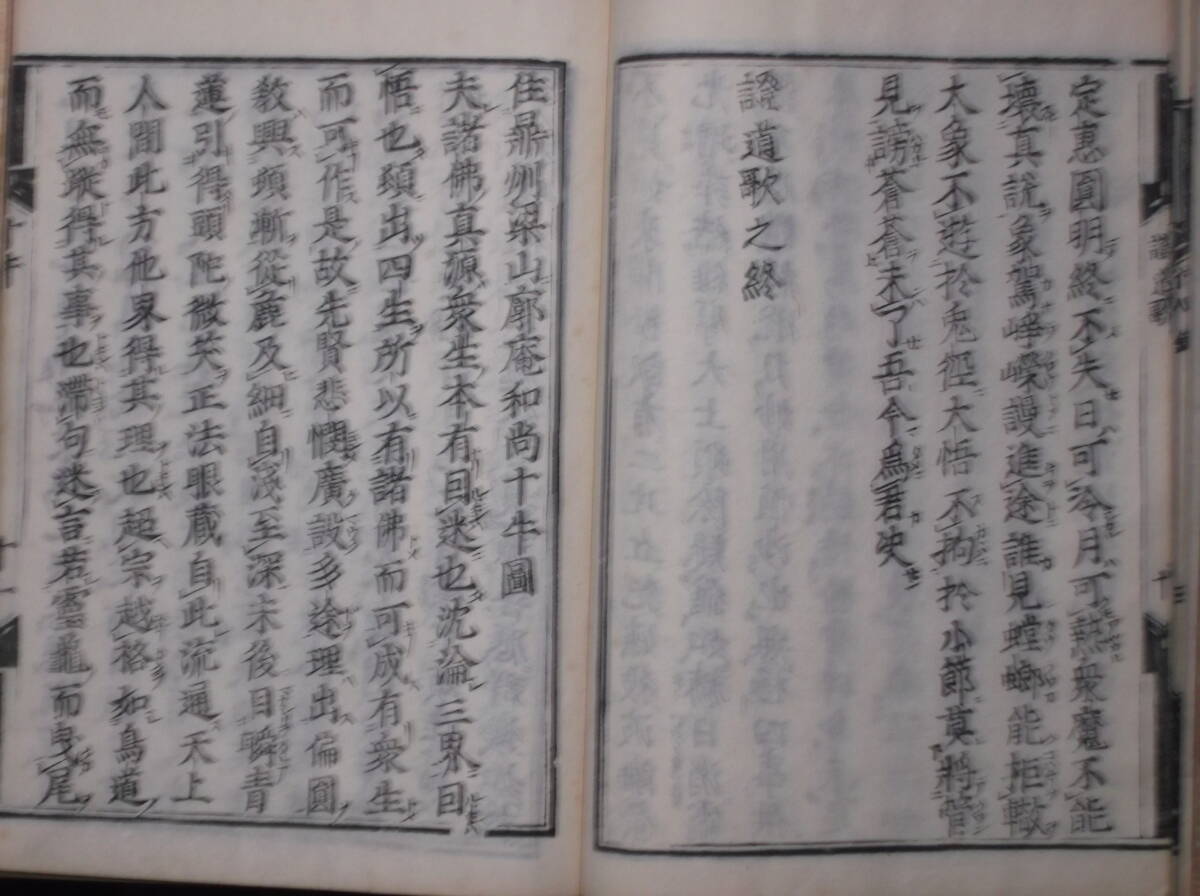 定惠圓明終不失日可冷月可熱衆魔不能
壞真說象駕崢嶸謾進途誰見螳螂能拒轍
大象不遊於兔徑大悟不拘於小節莫將管
見謗蒼蒼未了吾今爲君决
證道歌之終
住鼎州梁山廓庵和尚十牛圖
夫諸佛真源衆生本有因迷也沈淪三界因
悟也頓出四生所以有諸佛而可成有衆生
而可作是故先賢悲憫廣設多途理出偏圓
教興頓漸從麁及細自淺至深末後目瞬青
蓮引得頭陀微笑正法眼蔵自此流通天上
人間此方他界得其理也超宗越格如鳥道
而無蹤得其事也滯句迷言若靈龜而曳尾